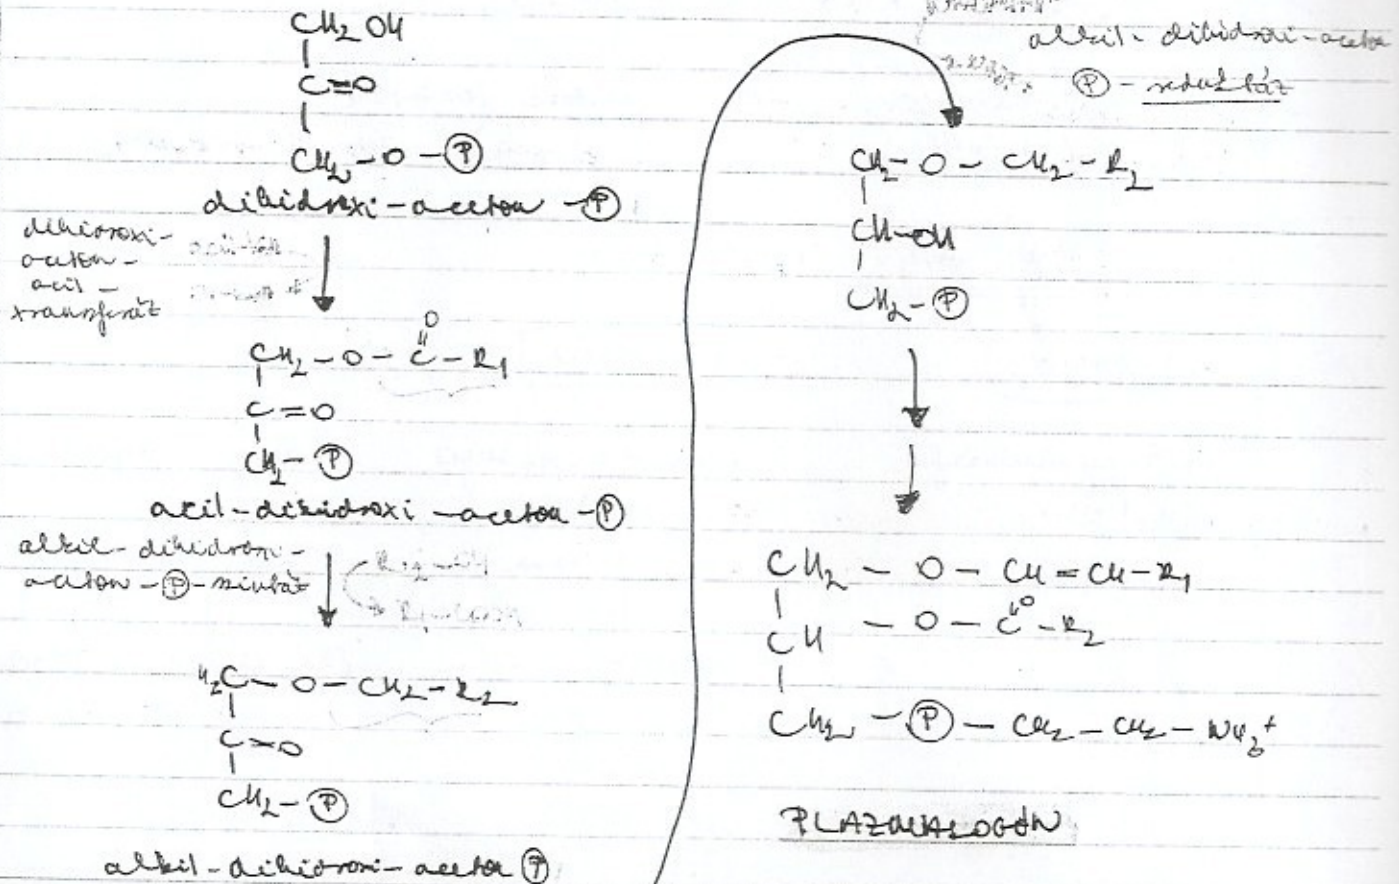 CH₂ OH
|
C=O
|
CH₂ - O - Ⓟ
dihidroxi-aceton - Ⓟ
dihidroxi-
aceton-
acil-
transzferáz
O
||
CH₂ - O - C - R₁
|
C=O
|
CH₂ - Ⓟ
acil-dihidroxi-aceton - Ⓟ
alkil-dihidroxi-
aceton - Ⓟ - szintáz
H₂C - O - CH₂ - R₂
|
C=O
|
CH₂ - Ⓟ
alkil-dihidroxi-aceton Ⓟ
alkil-dihidroxi-aceton
Ⓟ - reduktáz
CH₂ - O - CH₂ - R₂
|
CH-OH
|
CH₂ - Ⓟ
CH₂ - O - CH = CH - R₁
|
CH - O - C=O - R₂
|
CH₂ - Ⓟ - CH₂ - CH₂ - NH₃⁺
PLAZMALOGÉN